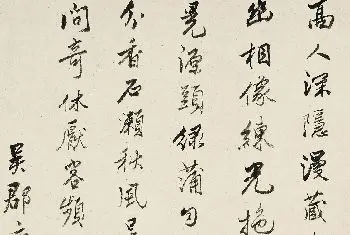 高人深隱漫藏
幽相像練光抱
晃源頭绿蒲勻
分香石瀨秋風
問奇休厭客頻
吳郡